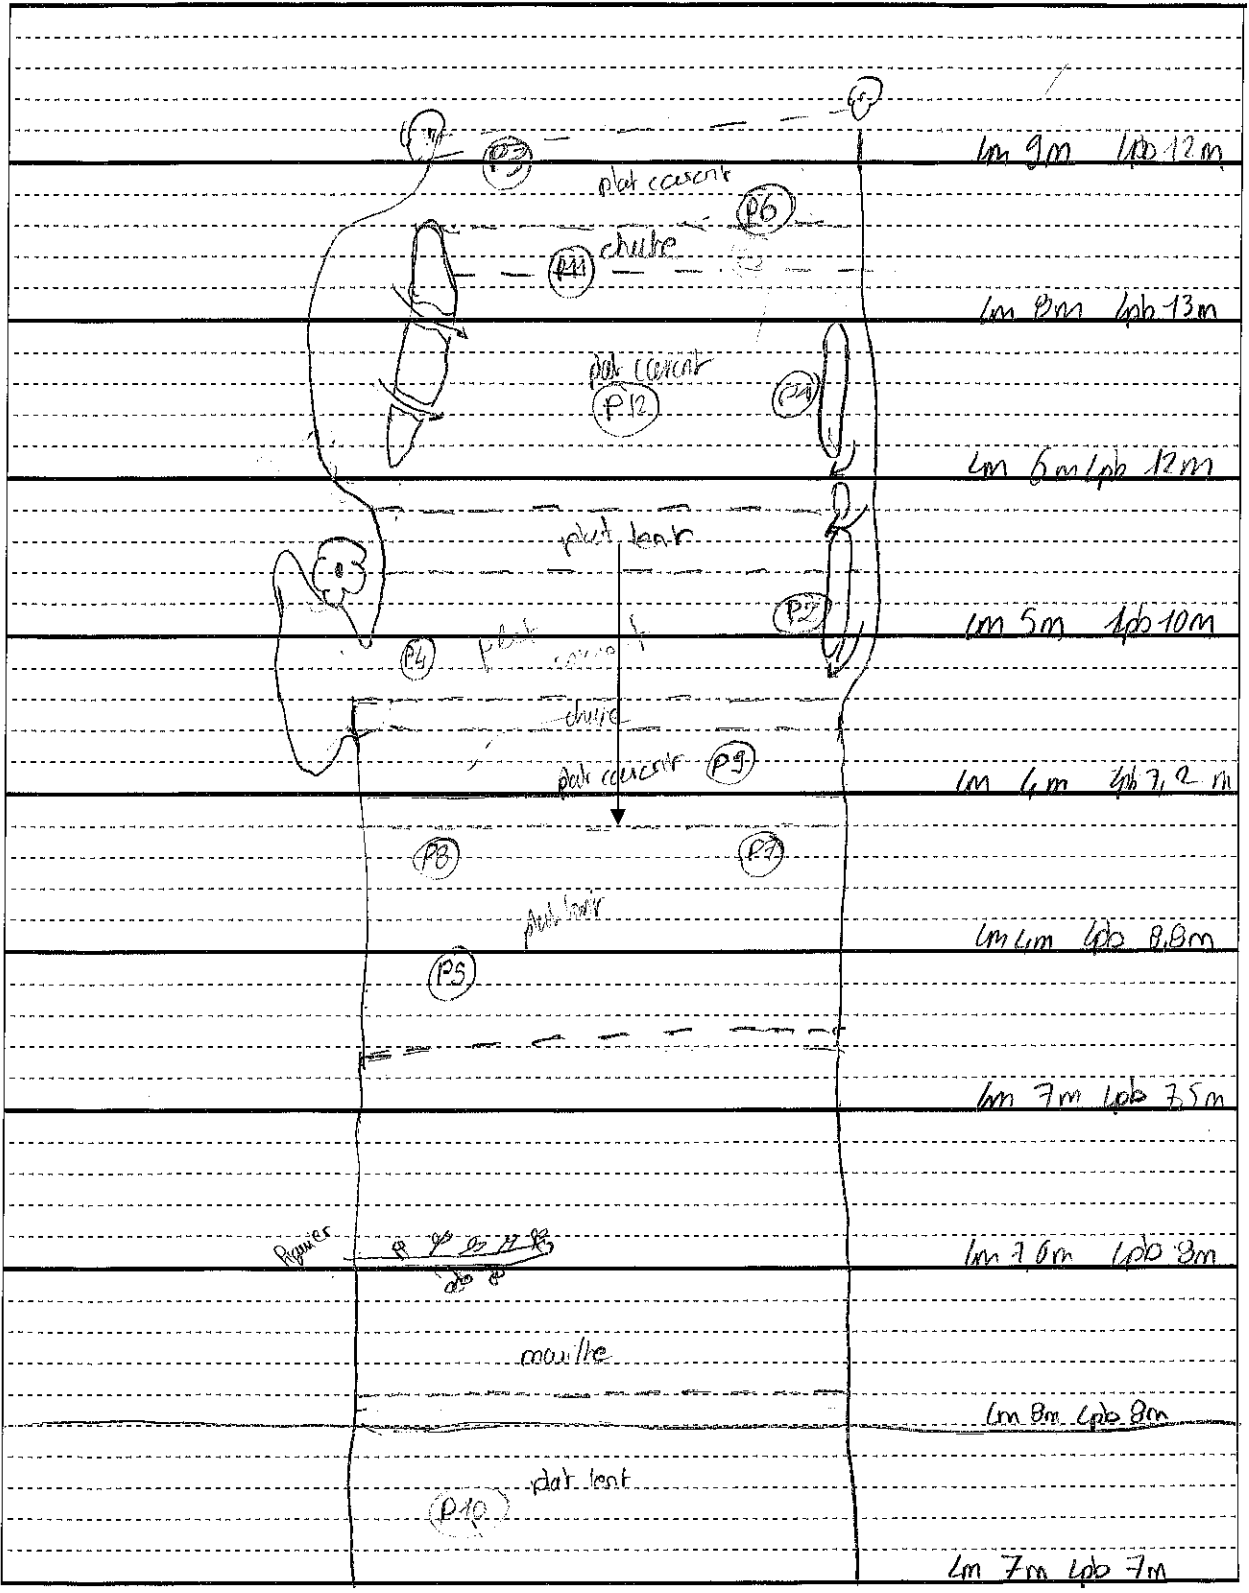 lm 9m lpb 12m
P3
plat courant
P6
chute
P11
lm 8m lpb 13m
plat courant
P12
P1
lm 6m lpb 12m
plat lent
P2
lm 5m lpb 10m
P4
plat
courant
chute
plat courant P9
lm 4m lpb 7,2 m
P8
P7
plat lent
lm 4m lpb 8,8m
P5
lm 7m lpb 7,5m
figuier
lm 7,6m lpb 8m
mouille
lm 8m lpb 8m
plat lent
P10
lm 7m lpb 7m